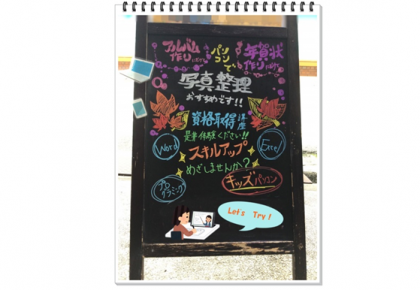 アルバム作り
パソコンで
年賀状作り
写真整理
おすすめです!!
資格取得講座
是非体験ください!!
Word
Excel
スキルアップ
めざしませんか?
プログラミング
キッズパソコン
Let's Try!